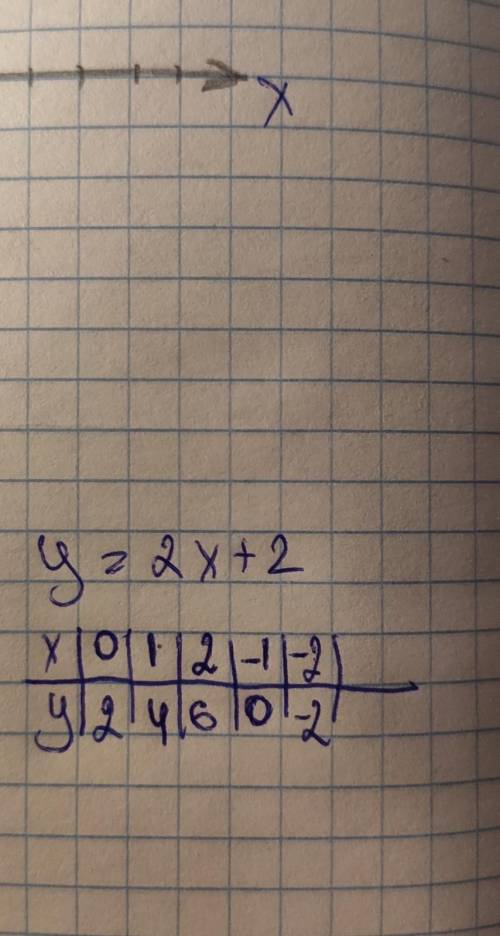 x
y = 2x+2
x | 0 | 1 | 2 | -1 | -2 |
y | 2 | 4 | 6 | 0 | -2 |